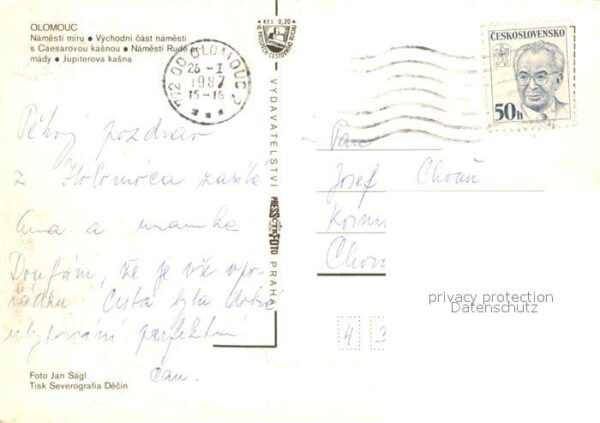 OLOMOUC
Náměstí míru • Východní část náměstí
s Caesarovou kašnou • Náměstí Rudé
mády • Jupiterova kašna
Kčs 0,20
772 00 OLOMOUC 2
26 -1
1987
15-16
ČESKOSLOVENSKO
50h
VYDAVATELSTVÍ PRESSFOTO PRAHA
Pěkný pozdrav
z Holomóca zasílá
a mamka
Doufám, že je vše v po-
řádku. Cesta byla dobrá
ubytování perfektní!
Čau.
Pan
Josef Chouň
Kosm
Chom
4 3
privacy protection
Datenschutz
Foto Jan Ságl
Tisk Severografia Děčín